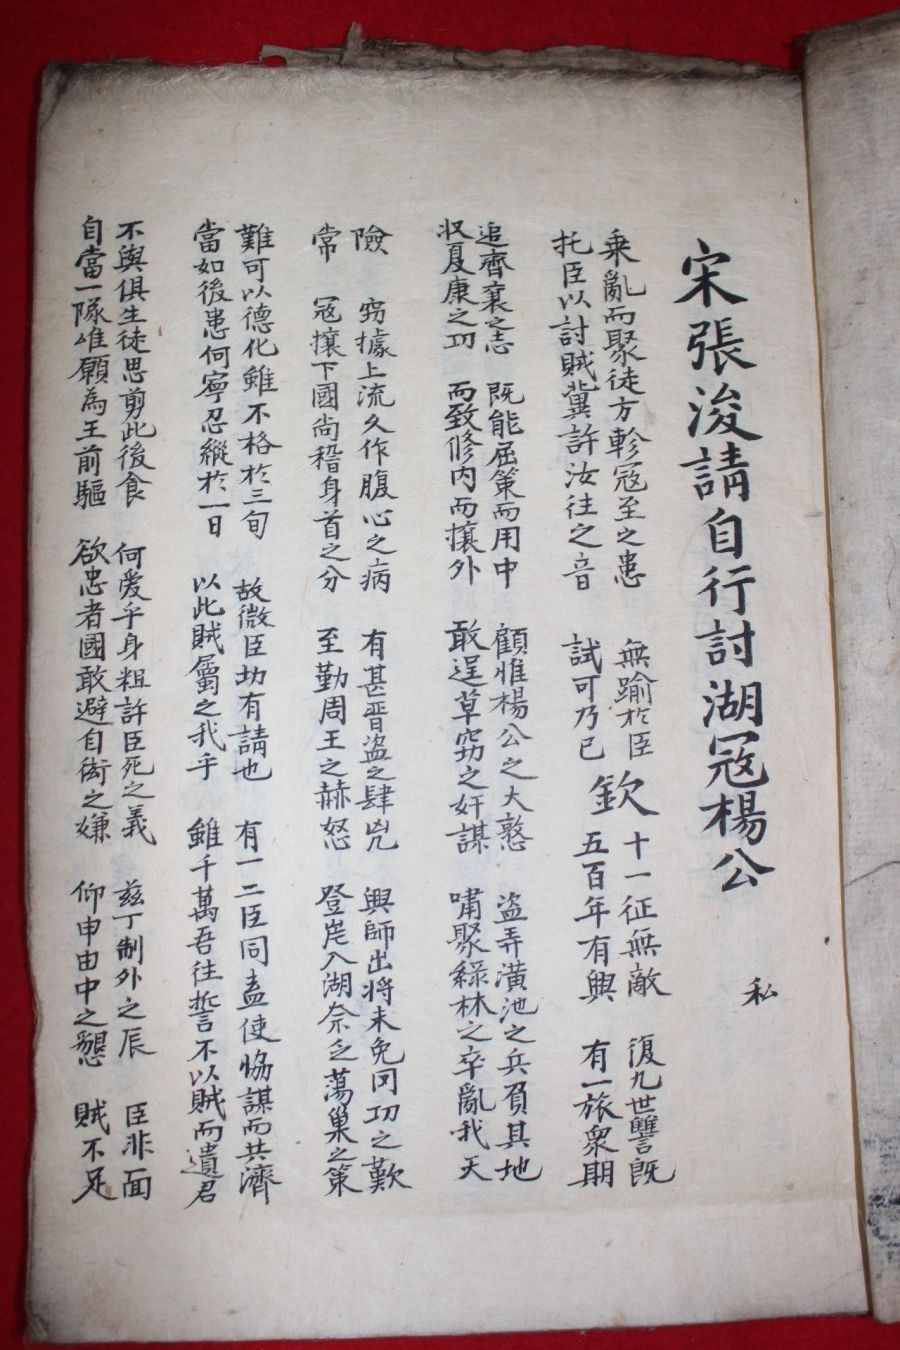 宋張浚請自行討湖冦楊公 私
乘亂而聚徒方軫冦至之患 無踰於臣
托臣以討賊冀許汝往之音 試可乃已
欽
十一征無敵 復九世讐既
五百年有興 有一旅衆期
追齊襄之志 既能屈策而用中 顧惟楊公之大憝 盜弄潢池之兵負其地
収夏康之功 而致修内而攘外 敢逞草竊之奸謀 嘯聚綠林之卒亂我天
險 竊據上流久作腹心之病 有甚晋盜之肆兇 興師出將未免罔功之歎
常 冦攘下國尚稽身首之分 至勤周王之赫怒 登崑入湖奈乏蕩巢之策
難可以德化雖不格於三旬 故微臣功有請也 有一二臣同盍使恊謀而共濟
當如後患何寧忍縱於一日 以此賊屬之我乎 雖千萬吾往誓不以賊而遺君
不與俱生徒思剪此後食 何愛乎身粗許臣死之義 玆丁制外之辰 臣非面
自當一隊唯願為王前驅 欲忠者國敢避自衒之嫌 仰申由中之懇 賊不足